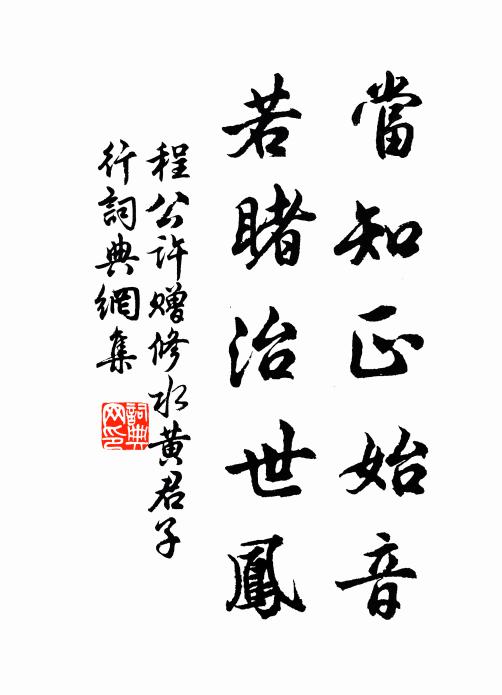 當知正始音
若睹治世鳳
程公許贈修水黃君子
行詞典網集
詞典網印